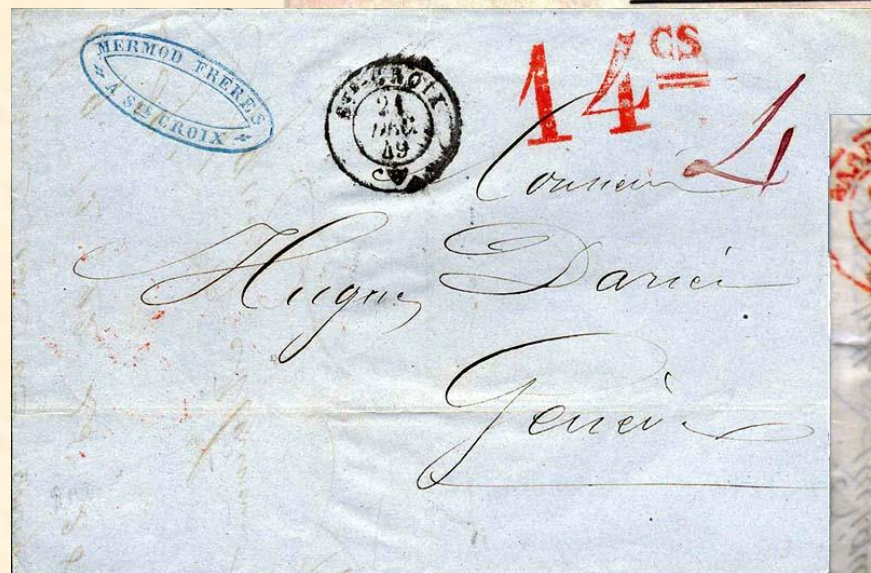 MERMOD FRERES
A Ste CROIX
Ste CROIX
21
DEC
49
14 cs
4
Monsieur
Hugues Darier
Genève